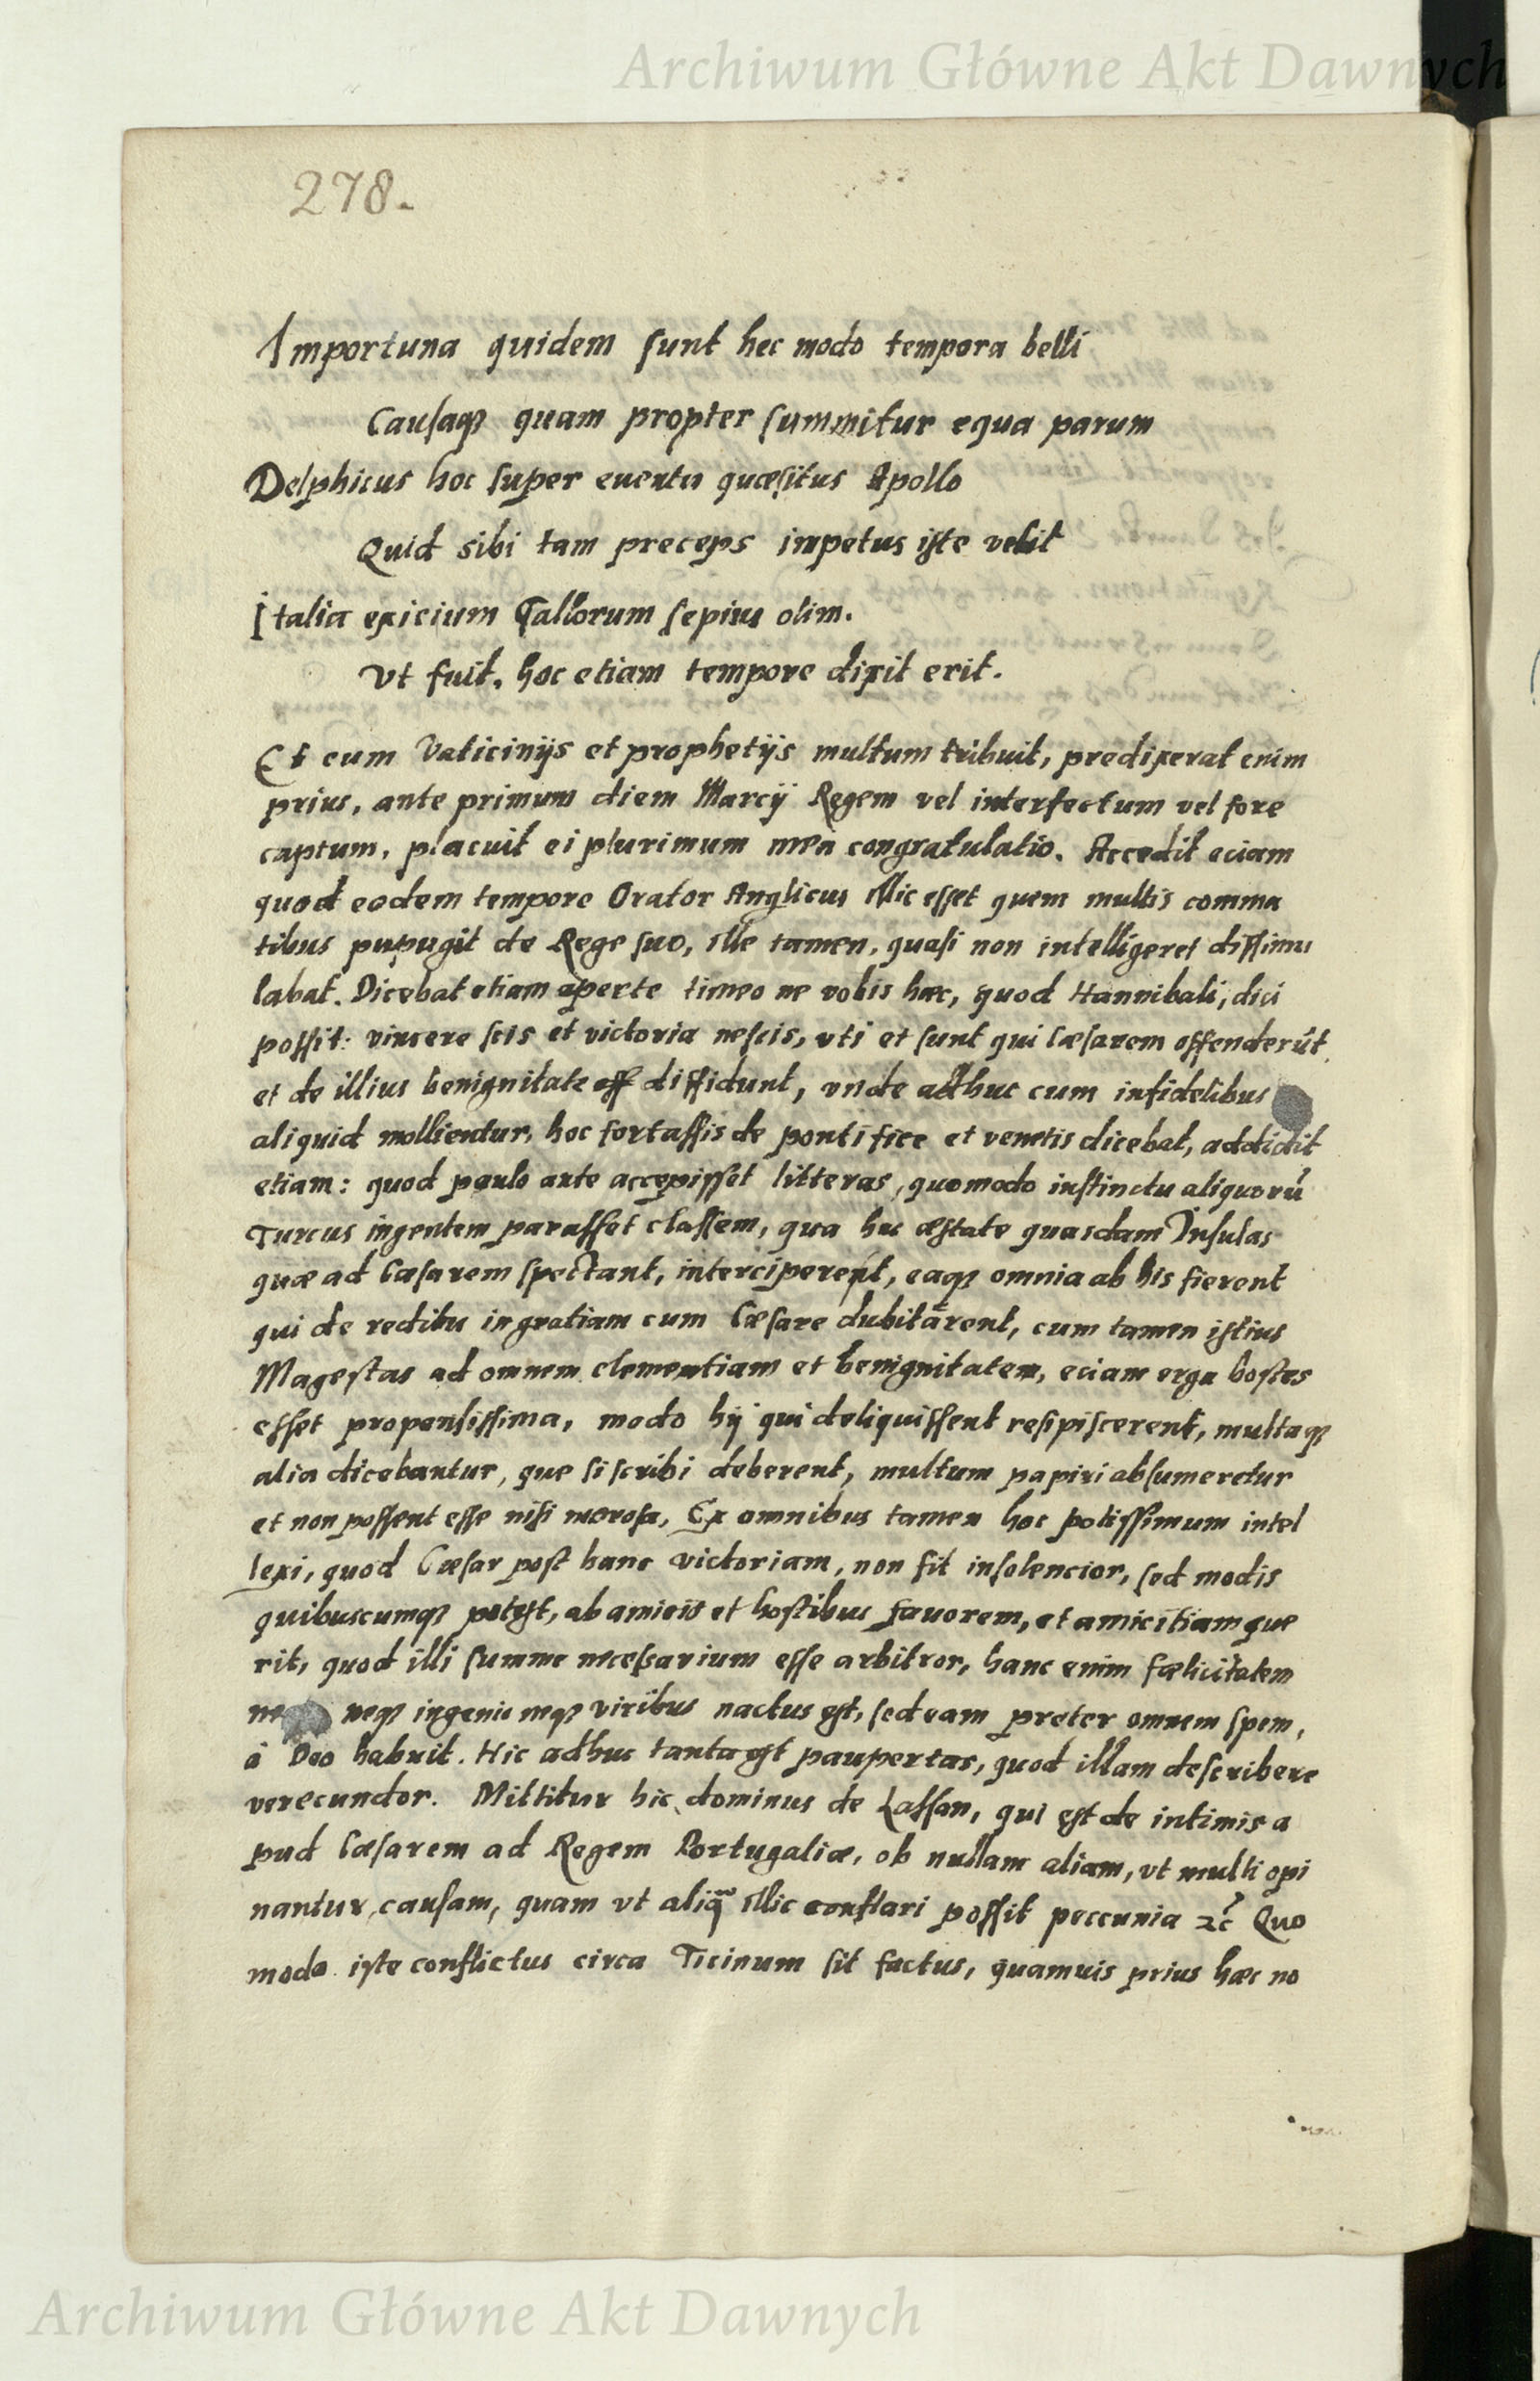 Archiwum Główne Akt Dawnych
278.
Importuna quidem sunt hec modo tempora belli
Causaqꝫ quam propter summitur equa parum
Delphicus hoc super euentu quæsitus Apollo
Quid sibi tam preceps impetus iste velit
Italia exicium Gallorum sepius olim.
Vt fuit, hoc etiam tempore dixit erit.
Et cum Vaticinijs et prophetijs multum tribuit, predixerat enim
prius, ante primum diem Marcij Regem vel interfectum vel fore
captum, placuit ei plurimum mea congratulatio. Accedit eciam
quod eodem tempore Orator Anglicus illic esset quem multis comma
tibus pupugit de Rege suo, ille tamen, quasi non intelligeret dissimu
labat. Dicebat etiam aperte timeo ne vobis hæc, quod Hannibali, dici
possit: vincere scis et victoria nescis, vti et sunt qui Cæsarem offenderūt
et de illius benignitate diffidunt, vnde adhuc cum infidelibus
aliquid mollientur, hoc fortassis de pontifice et venetis dicebat, addidit
etiam: quod paulo ante accepisset litteras, quomodo instinctu aliquorū
Turcus ingentem parasset classem, qua hac æstate quasdam Insulas
quæ ad Cæsarem spectant, interciperent, eaqꝫ omnia ab his fierent
qui de reditu in gratiam cum Cæsare dubitarent, cum tamen istius
Magestas ad omnem clementiam et benignitatem, eciam erga hostes
esset propensissima, modo hij qui deliquissent resipiscerent, multaqꝫ
alia dicebantur, que si scribi deberent, multum papiri absumeretur
et non possent esse nisi morosa, Ex omnibus tamen hoc potissimum intel
lexi, quod Cæsar post hanc victoriam, non sit insolencior, sed modis
quibuscumqꝫ potest, ab amicis et hostibus fauorem, et amicitiam que
rit, quod illi summe necessarium esse arbitror, hanc enim fælicitatem
neqꝫ ingenio neqꝫ viribus nactus est, sed eam preter omnem spem,
à Deo habuit. Hic adhuc tanta est paupertas, quod illam describere
verecundor. Mittitur hic dominus de Lassan, qui est de intimis a
pud Cæsarem ad Regem Portugaliæ, ob nullam aliam, vt multi opi
nantur, causam, quam vt aliq̃ illic conflari possit peccunia ꝛc̃ Quo
modo iste conflictus circa Ticinum sit factus, quamuis prius hæc no
Archiwum Główne Akt Dawnych